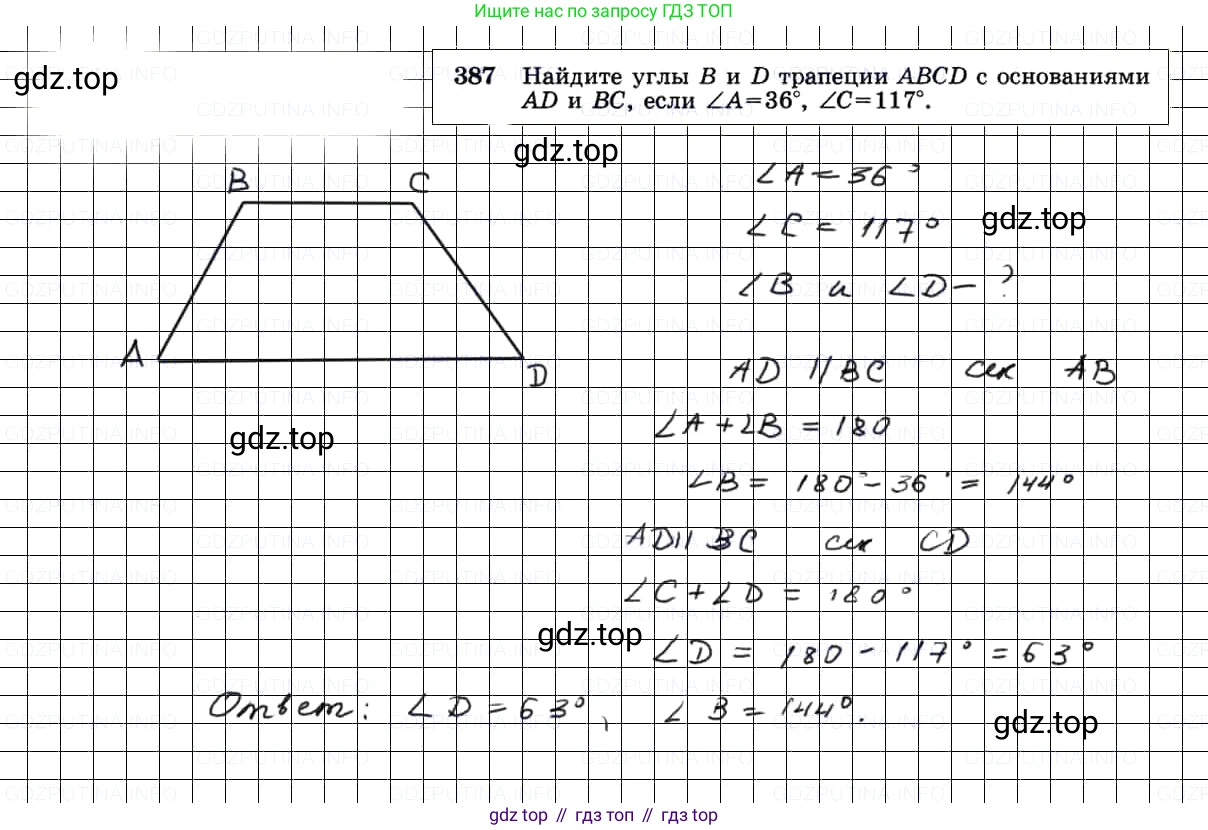 Ищите нас по запросу ГДЗ ТОП
gdz.top
387 Найдите углы B и D трапеции ABCD с основаниями
AD и BC, если ∠A=36°, ∠C=117°.
gdz.top
B C
∠A = 36°
∠C = 117°
gdz.top
∠B и ∠D - ?
A
D
AD || BC сек AB
∠A + ∠B = 180
gdz.top
∠B = 180° - 36° = 144°
AD || BC сек CD
∠C + ∠D = 180°
gdz.top
∠D = 180 - 117° = 63°
Ответ: ∠D = 63°, ∠B = 144°.
gdz.top
gdz top // гдз топ // гдз top
GDZPUTINA.INFO